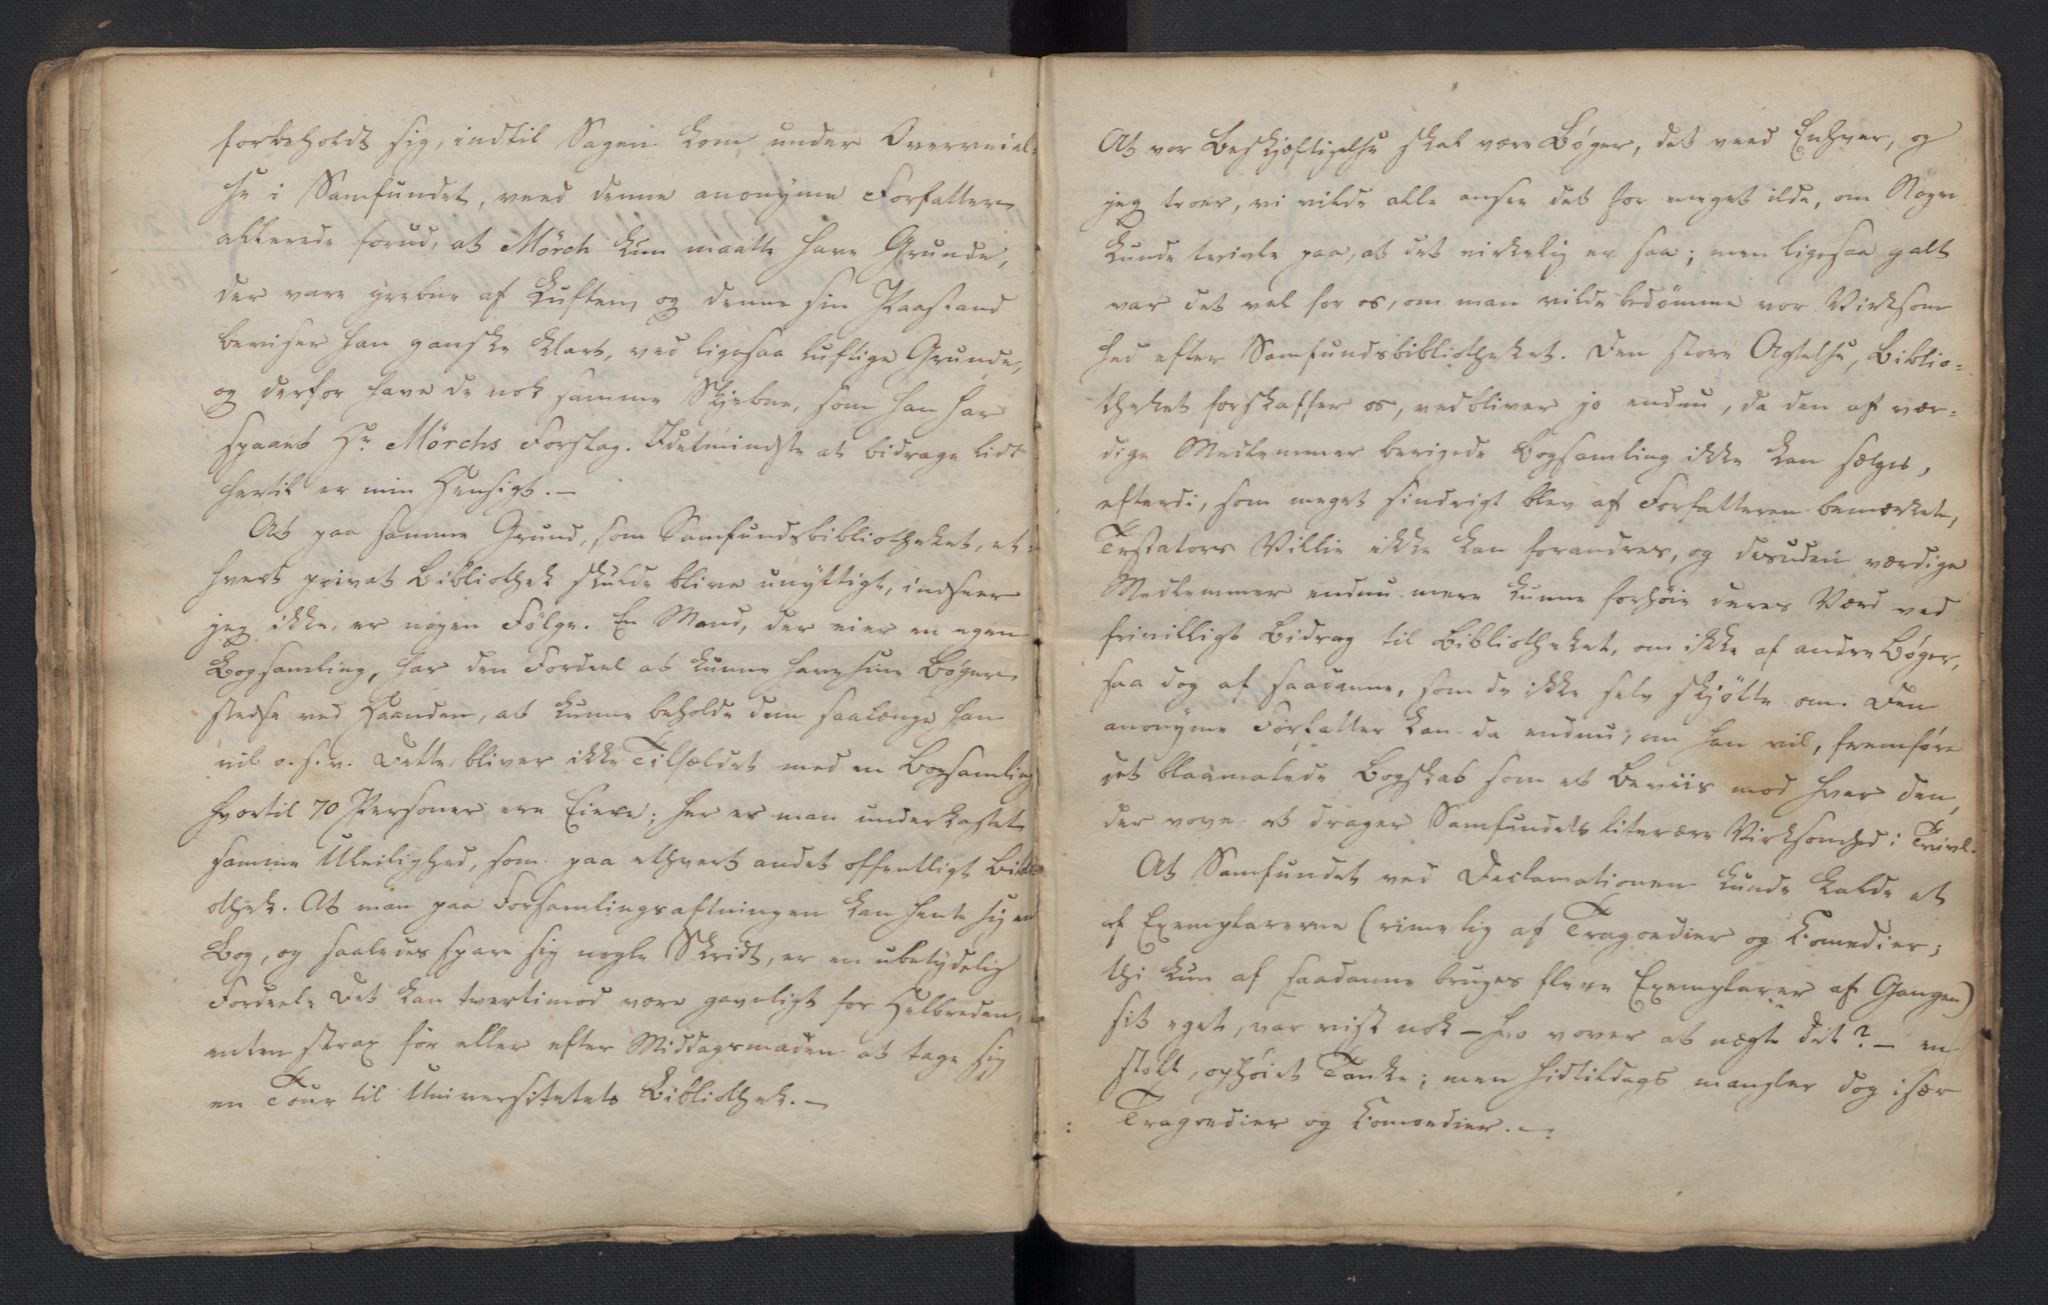 forbeholdt sig, indtil Sagen kom under Overveiel-
se i Samfundet, veed denne anonyme Forfatter
allerede forud, at Mörch kun maatte have Grunde,
der vare grebne af Luften, og denne sin Paastand
beviser han ganske klart, ved ligesaa luftige Grunde,
og derfor have de nok samme Skjebne, som han har
spaaet Hr Mörchs Forslag. Idetmindste at bidrage lidt
hertil er min Hensigt. —
At paa samme Grund, som Samfundsbibliotheket, et-
hvert privat Bibliothek skulde blive unyttigt, indseer
jeg ikke, er nogen Fölge. En Mand, der eier en egen
Bogsamling, har den Fordeel at kunne have sine Bøger
stedse ved Haanden, at kunne beholde dem saalænge han
vil o. s. v. Dette bliver ikke Tilfældet med en Bogsamling
hvortil 70 Personer ere Eiere; her er man underkastet
samme Uleilighed, som paa ethvert andet offentligt Bibli-
othek. At man paa Forsamlingsaftningen kan hente sig en
Bog, og saaledes spare sig nogle Skridt, er en ubetydelig
Fordeel. Det kan tvertimod være gavnligt for Helbreden,
enten strax för eller efter Middagsmaden at tage sig
en Tour til Universitetets Bibliothek. —
At vor Beskjæftigelse skal være Bøger, det veed Enhver, og
jeg troer, vi vilde alle ansee det for meget ilde, om Nogen
kunde tvivle paa, at det virkelig er saa; men ligesaa galt
var det vel for os, om man vilde bedömme vor Virksom
hed efter Samfundsbibliotheket. Den store Agtelse, Biblio-
theket forskaffer os, vedbliver jo endnu, da den af vær-
dige Medlemmer berigede Bogsamling ikke kan sælges,
efterdi, som meget sindrigt blev af Forfatteren bemærket,
Testators Villie ikke kan forandres, og desuden værdige
Medlemmer endnu mere kunne forhøie deres Værd ved
frivilligt Bidrag til Bibliotheket, om ikke af andre Bøger,
saa dog af saadanne, som de ikke selv skjötte om. Den
anonyme Forfatter kan da endnu, om han vil, fremføre
det blaamalede Bogskab som et Beviis mod hver den,
der vove at drager Samfundets literære Virksomhed i Tvivl.
At Samfundet ved Declamationen kunde kalde et
af Exemplarerne (rimelig af Tragoedier og Comedier;
thi kun af saadanne bruges flere Exemplarer af Gangen)
sit eget, var vist nok — hvo vover at nægte det? — en
stolt, ophöiet Tanke; men hidtildags mangler dog især
Tragoedier og Comoedier. —